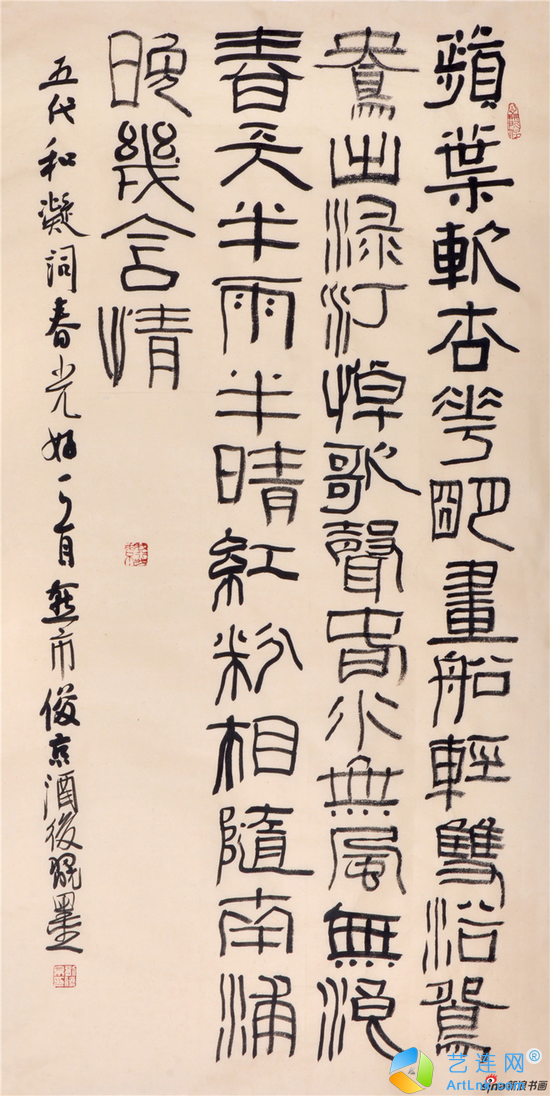 蘋葉軟杏花朙畫船輕雙浴鴛
鴦出渌汀悼歌聲春水無風無浪
春天半雨半晴紅粉相隨南浦
晚幾含情
五代和凝詞春光好一首 俊京酒後墨
艺连网
ArtLne.com
sina新浪书画